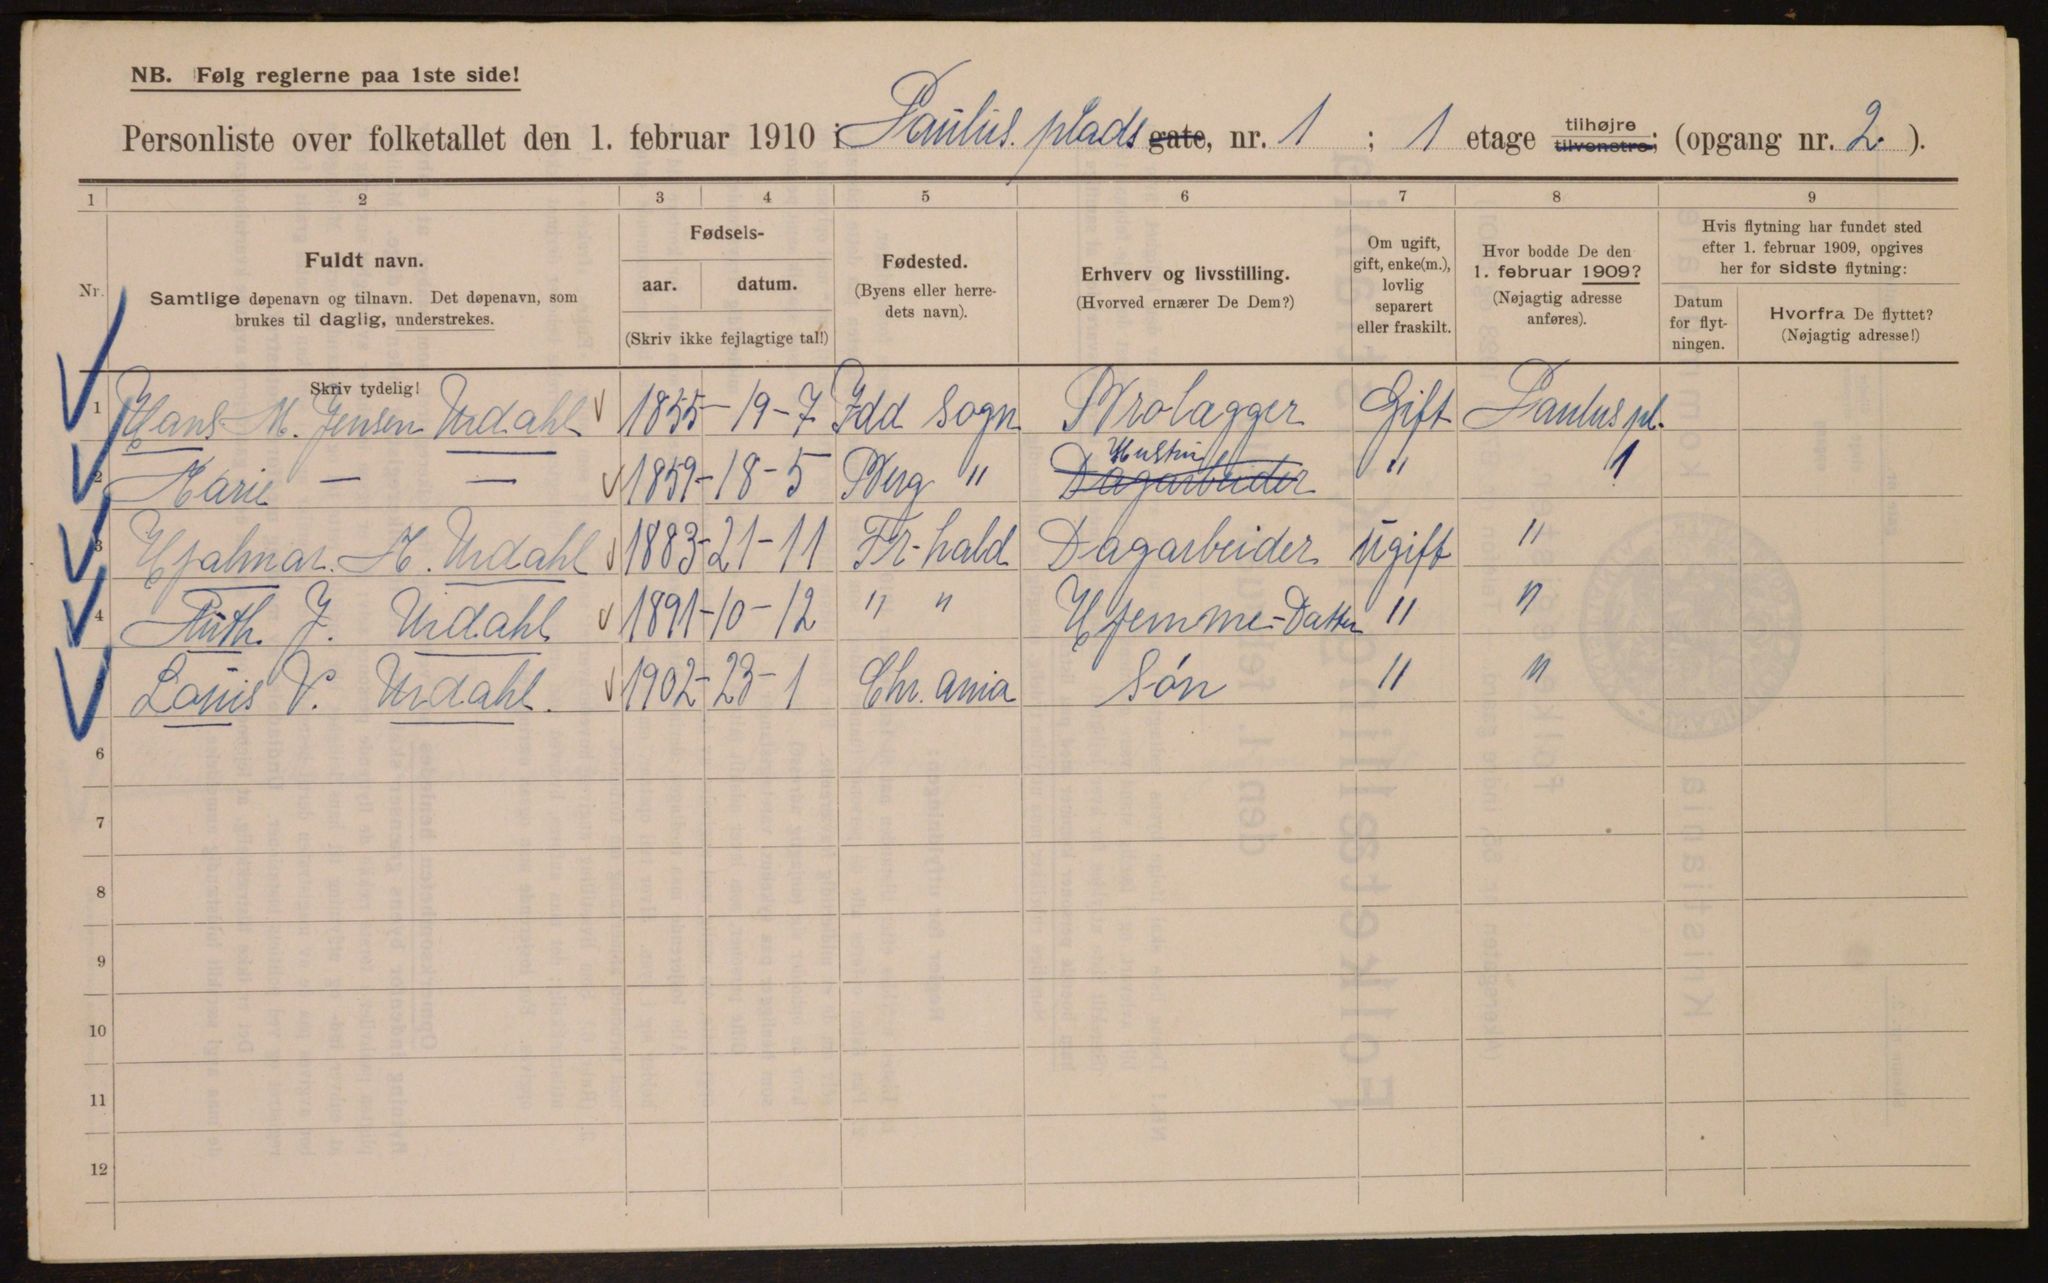 NB. Følg reglerne paa 1ste side!
Personliste over folketallet den 1. februar 1910 i Paulus. plads gate, nr. 1 ; 1 etage tilhøjre tilvenstre; (opgang nr. 2. ).
1 2 3 4 5 6 7 8 9
Nr.
Fuldt navn.
Samtlige døpenavn og tilnavn. Det døpenavn, som
brukes til daglig, understrekes.
Fødsels-
aar. datum.
(Skriv ikke fejlagtige tal!)
Fødested.
(Byens eller herre-
dets navn).
Erhverv og livsstilling.
(Hvorved ernærer De Dem?)
Om ugift,
gift, enke(m.),
lovlig
separert
eller fraskilt.
Hvor bodde De den
1. februar 1909?
(Nøjagtig adresse
anføres).
Hvis flytning har fundet sted
efter 1. februar 1909, opgives
her for sidste flytning:
Datum
for flyt-
ningen.
Hvorfra De flyttet?
(Nøjagtig adresse!)
Skriv tydelig!
1 Hans M. Jensen Urdahl 1855 - 19 - 7 Idd Sogn Brolægger Gift Paulus pl.
2 Marie — — 1859 - 18 - 5 Berg " Hustru Dagarbeider " 1
3 Hjalmar. M. Urdahl 1883 - 21 - 11 Fr-hald Dagarbeider ugift "
4 Ruth. J. Urdahl 1891 - 10 - 12 " " Hjemme-Datter " "
5 Louis V. Urdahl. 1902 - 23 - 1 Chr. ania Søn " "
6
7
8
9
10
11
12